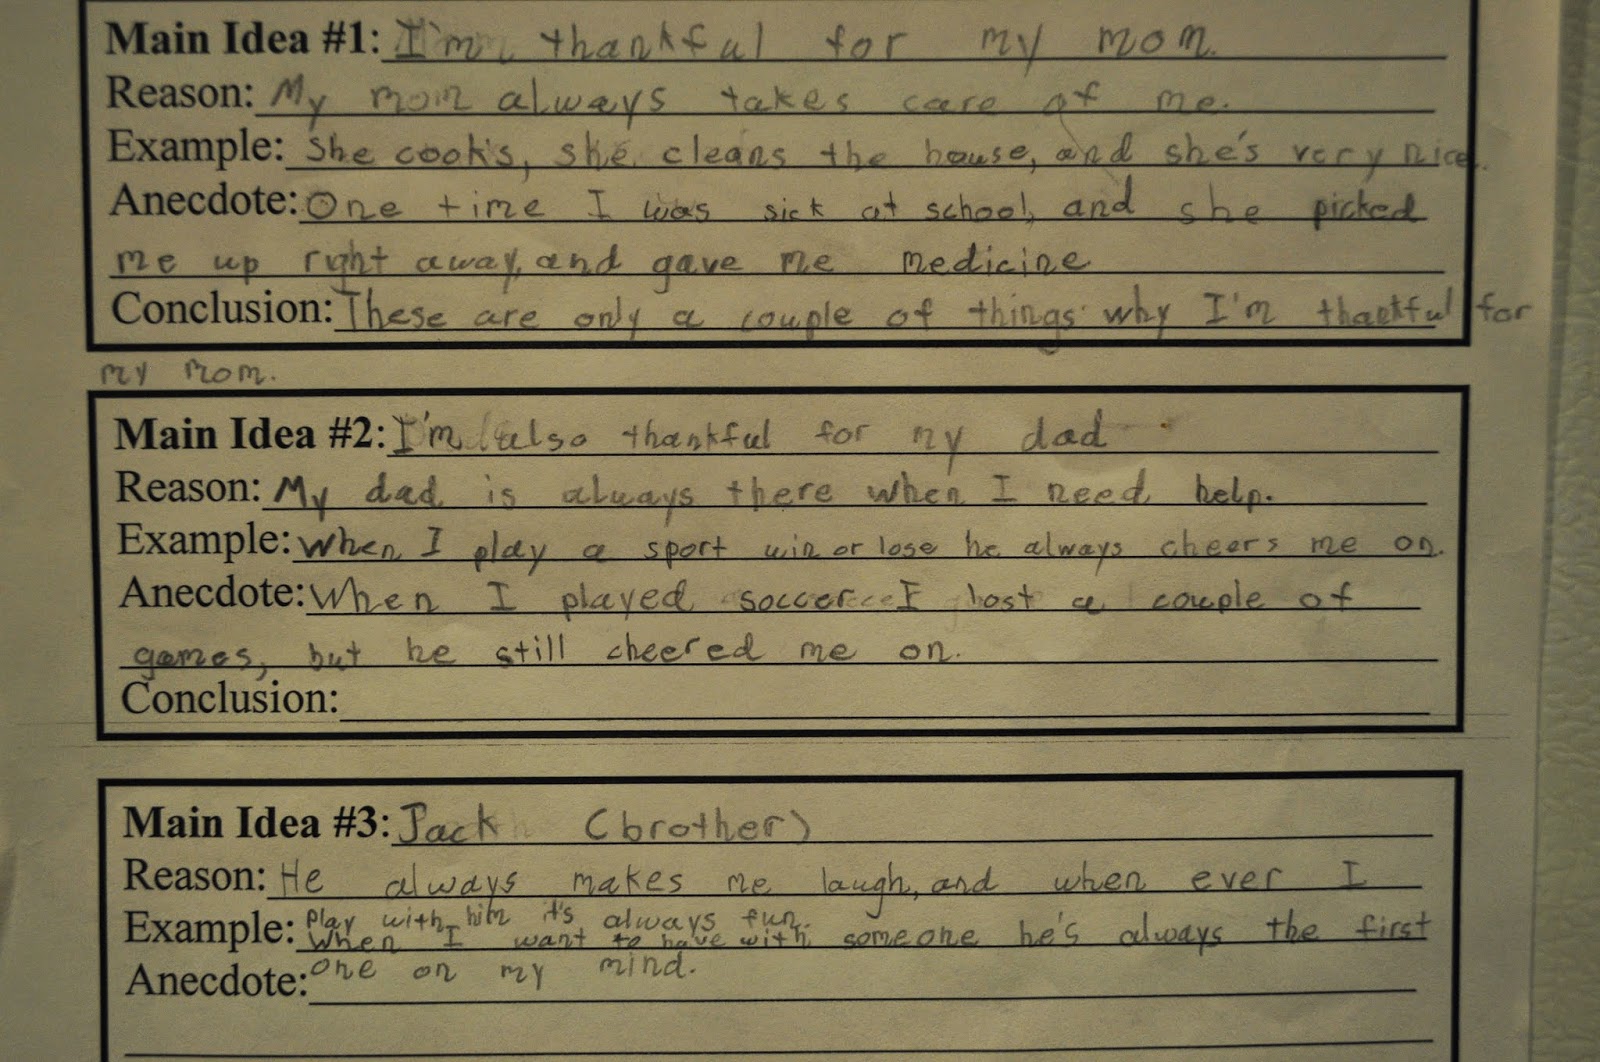 Main Idea #1: I'm thankful for my mom.
Reason: My mom always takes care of me.
Example: She cook's, she cleans the house, and she's very nice.
Anecdote: One time I was sick at school, and she picked
me up right away, and gave me medicine
Conclusion: These are only a couple of things why I'm thankful for
my mom.
Main Idea #2: I'm also thankful for my dad
Reason: My dad is always there when I need help.
Example: When I play a sport win or lose he always cheers me on.
Anecdote: When I played soccer I lost a couple of
games, but he still cheered me on.
Conclusion:
Main Idea #3: Jack (brother)
Reason: He always makes me laugh, and when ever I
play with him it's always fun.
Example: When I want to have with someone he's always the first
one on my mind.
Anecdote: